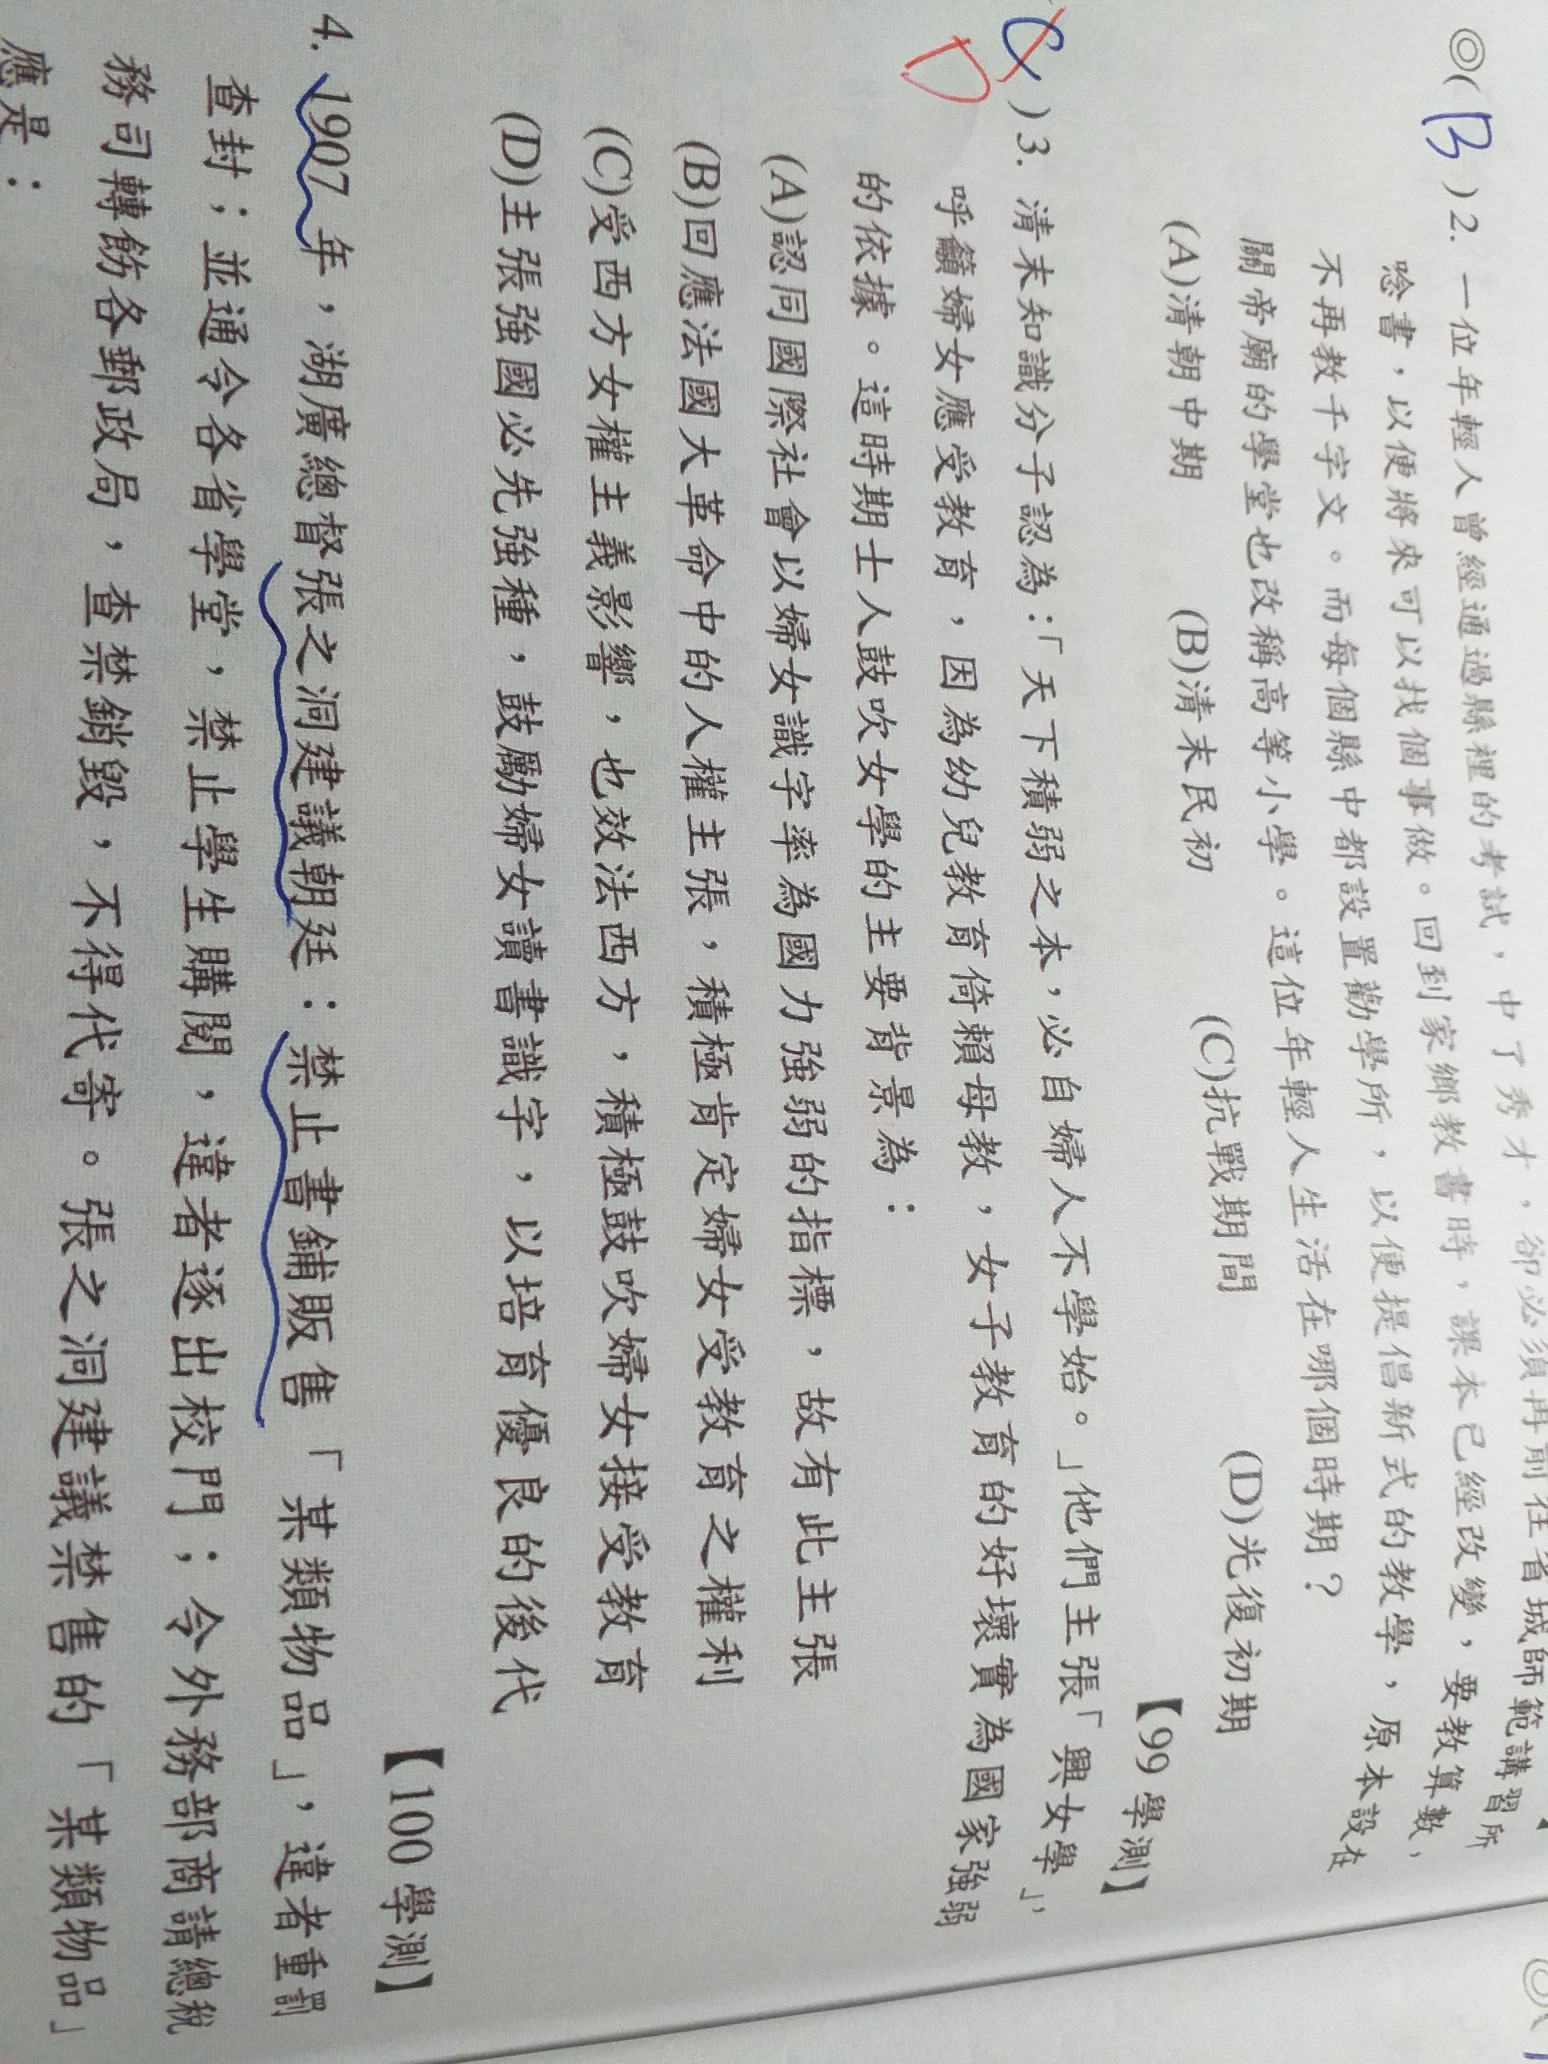 ◎( B )2. 一位年輕人曾經通過縣裡的考試，中了秀才，卻必須再前往省城師範講習所
唸書，以便將來可以找個事做。回到家鄉教書時，課本已經改變，要教算數，
不再教千字文。而每個縣中都設置勸學所，以便提倡新式的教學，原本設在
關帝廟的學堂也改稱高等小學。這位年輕人生活在哪個時期？
(A)清朝中期 (B)清末民初 (C)抗戰期間 (D)光復初期
【99 學測】
C D )3. 清末知識分子認為：「天下積弱之本，必自婦人不學始。」他們主張「興女學」，
呼籲婦女應受教育，因為幼兒教育倚賴母教，女子教育的好壞實為國家強弱
的依據。這時期士人鼓吹女學的主要背景為：
(A)認同國際社會以婦女識字率為國力強弱的指標，故有此主張
(B)回應法國大革命中的人權主張，積極肯定婦女受教育之權利
(C)受西方女權主義影響，也效法西方，積極鼓吹婦女接受教育
(D)主張強國必先強種，鼓勵婦女讀書識字，以培育優良的後代
【100 學測】
4. 1907 年，湖廣總督張之洞建議朝廷：禁止書鋪販售「某類物品」，違者重罰
查封；並通令各省學堂，禁止學生購閱，違者逐出校門；令外務部商請總稅
務司轉飭各郵政局，查禁銷毀，不得代寄。張之洞建議禁售的「某類物品」
應是：